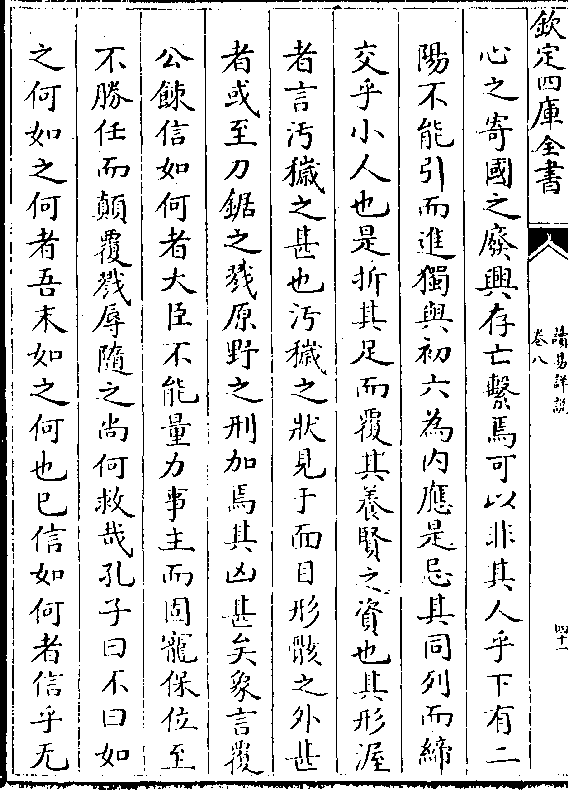 欽定四庫全書
讀易詳說
卷八
四十一
心之寄國之廢興存亡繫焉可以非其人乎下有二
陽不能引而進獨與初六為内應是忌其同列而締
交乎小人也是折其足而覆其養賢之資也其形渥
者言汚穢之甚也汚穢之狀見于面目形骸之外甚
者或至刀鋸之戮原野之刑加焉其凶甚矣象言覆
公餗信如何者大臣不能量力事主而固寵保位至
不勝任而顛覆戮辱隨之尚何救哉孔子曰不曰如
之何如之何者吾末如之何也已信如何者信乎无